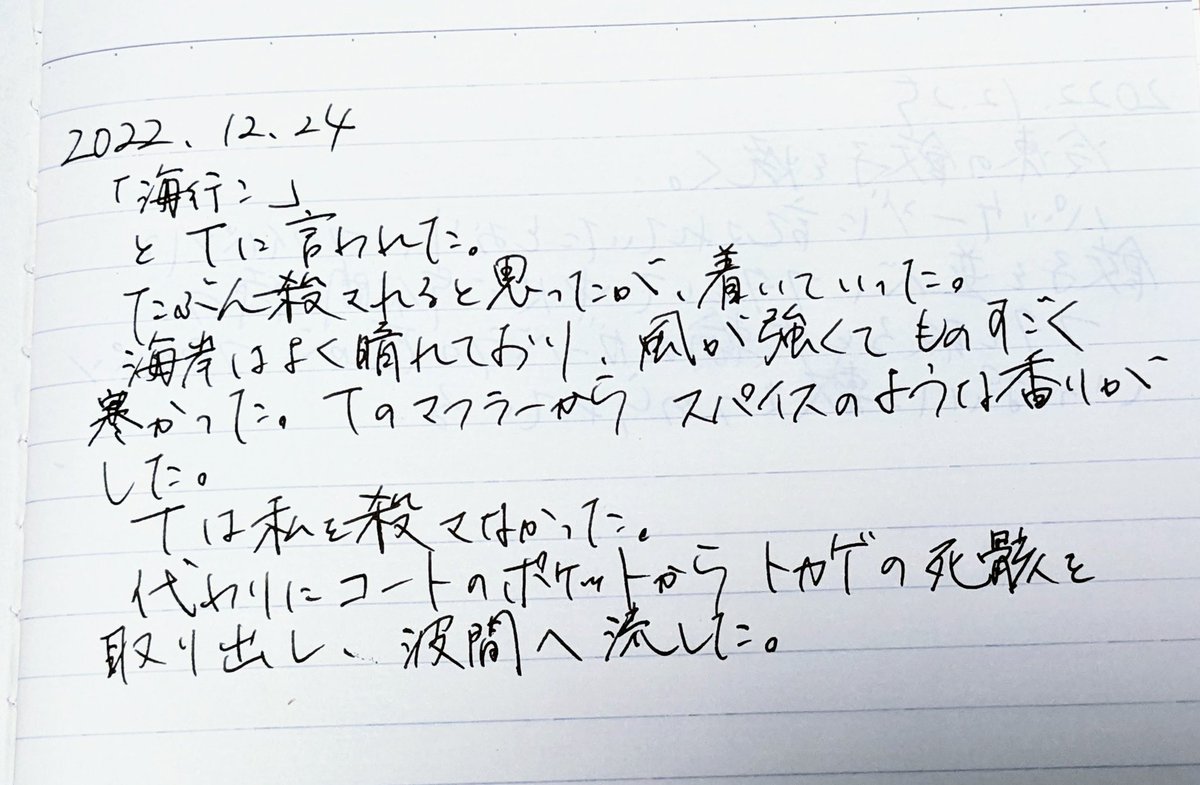 2022.12.24
「海行こ」
とTに言われた。
たぶん殺されると思ったが、着いていった。
海岸はよく晴れており、風が強くてものすごく
寒かった。Tのマフラーからスパイスのような香りが
した。
Tは私を殺さなかった。
代わりにコートのポケットからトカゲの死骸を
取り出し、波間へ流した。